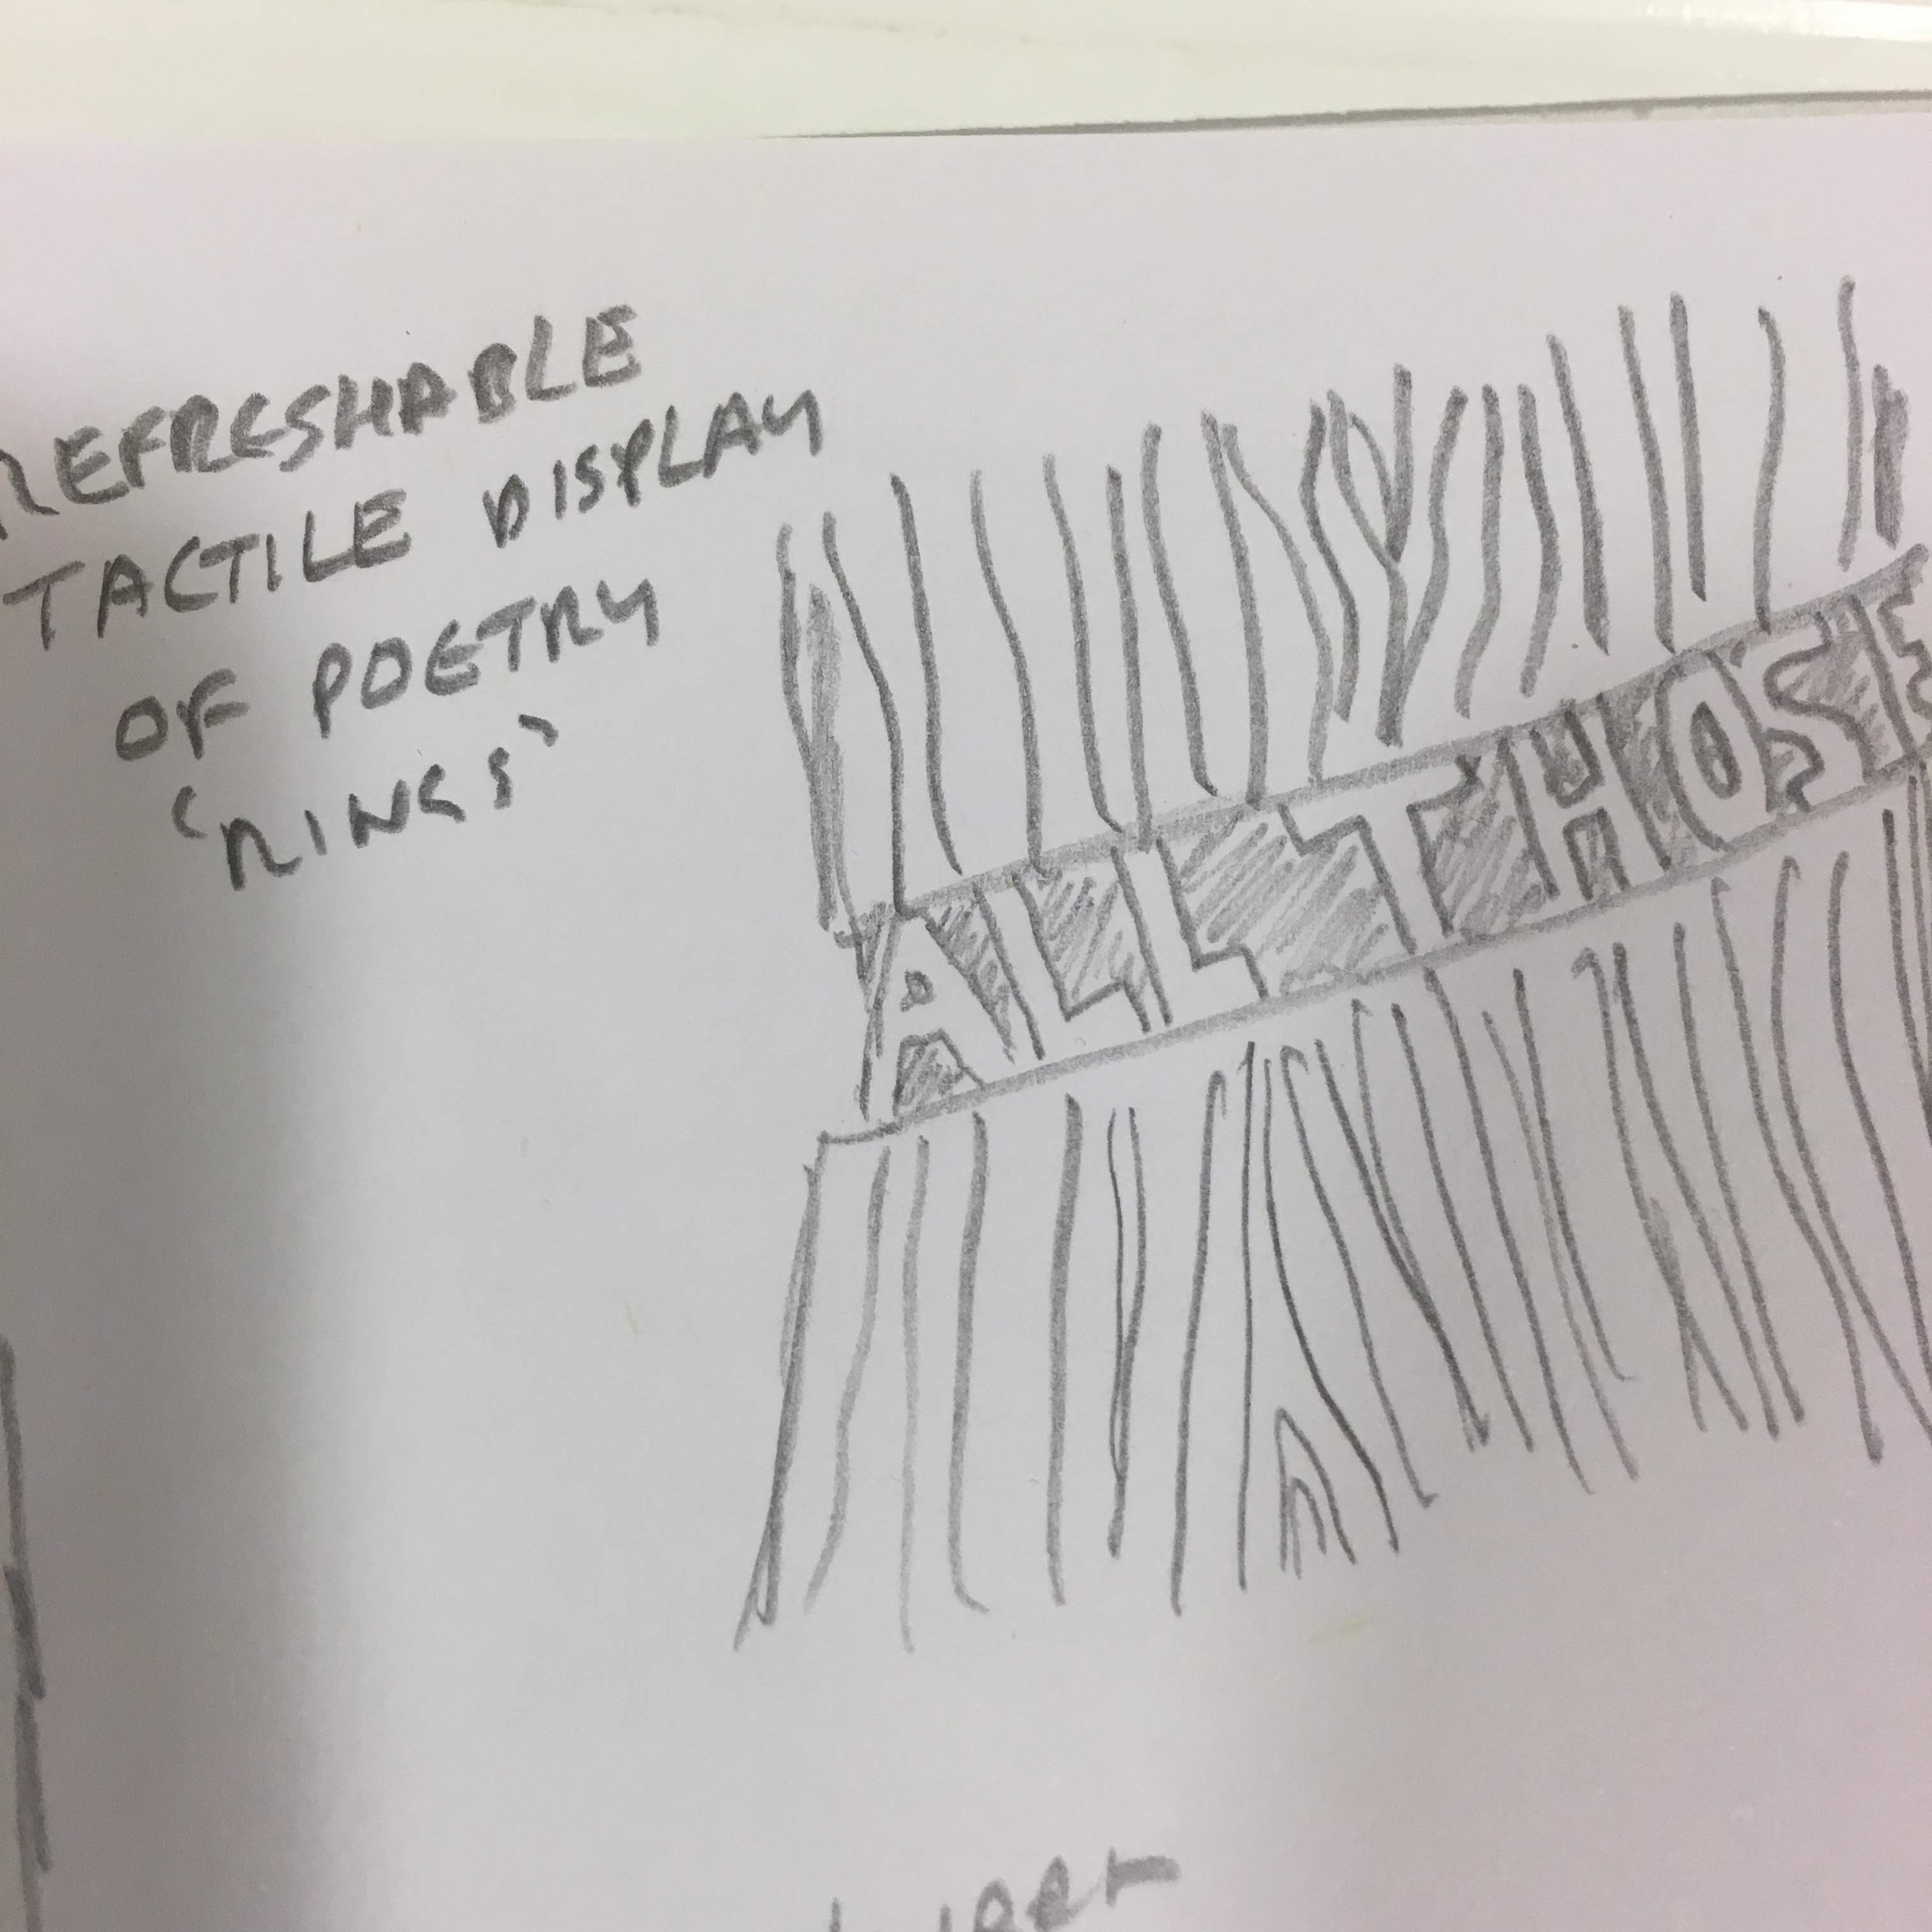 REFRESHABLE
TACTILE DISPLAY
OF POETRY
'RINGS'
ALL THOSE